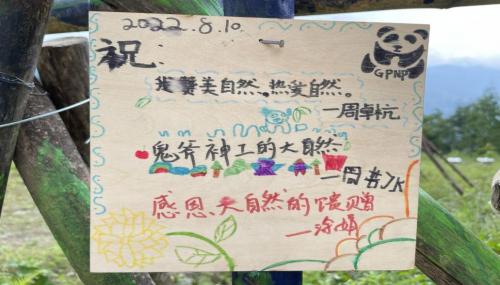 2022.8.10.
祝:
GPNP
赞美自然。热爱自然。
一周卓杭
鬼斧神工的大自然
一周
感恩、大自然的馈赠
—涂娟